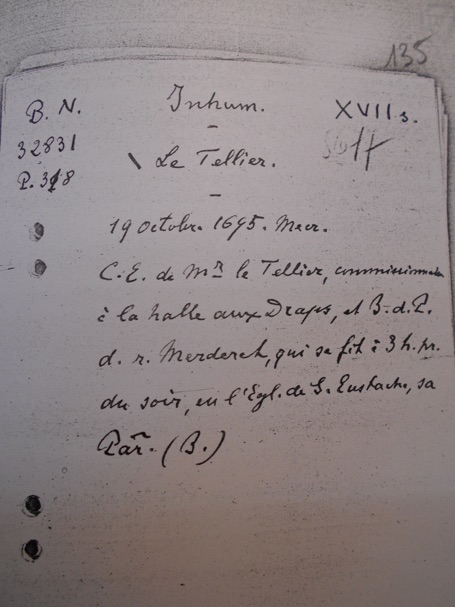 135
B. N. Inhum. XVII s.
32831
P. 318
Le Tellier.
19 octobre 1695. Mecr.
C. E. de Mr le Tellier, commissionnaire
à la halle aux Draps, et B. d. P.
d. r. Merderet, qui se fit à 3 h. pr.
du soir, en l'Egl. de S. Eustache, sa
Par. (B.)